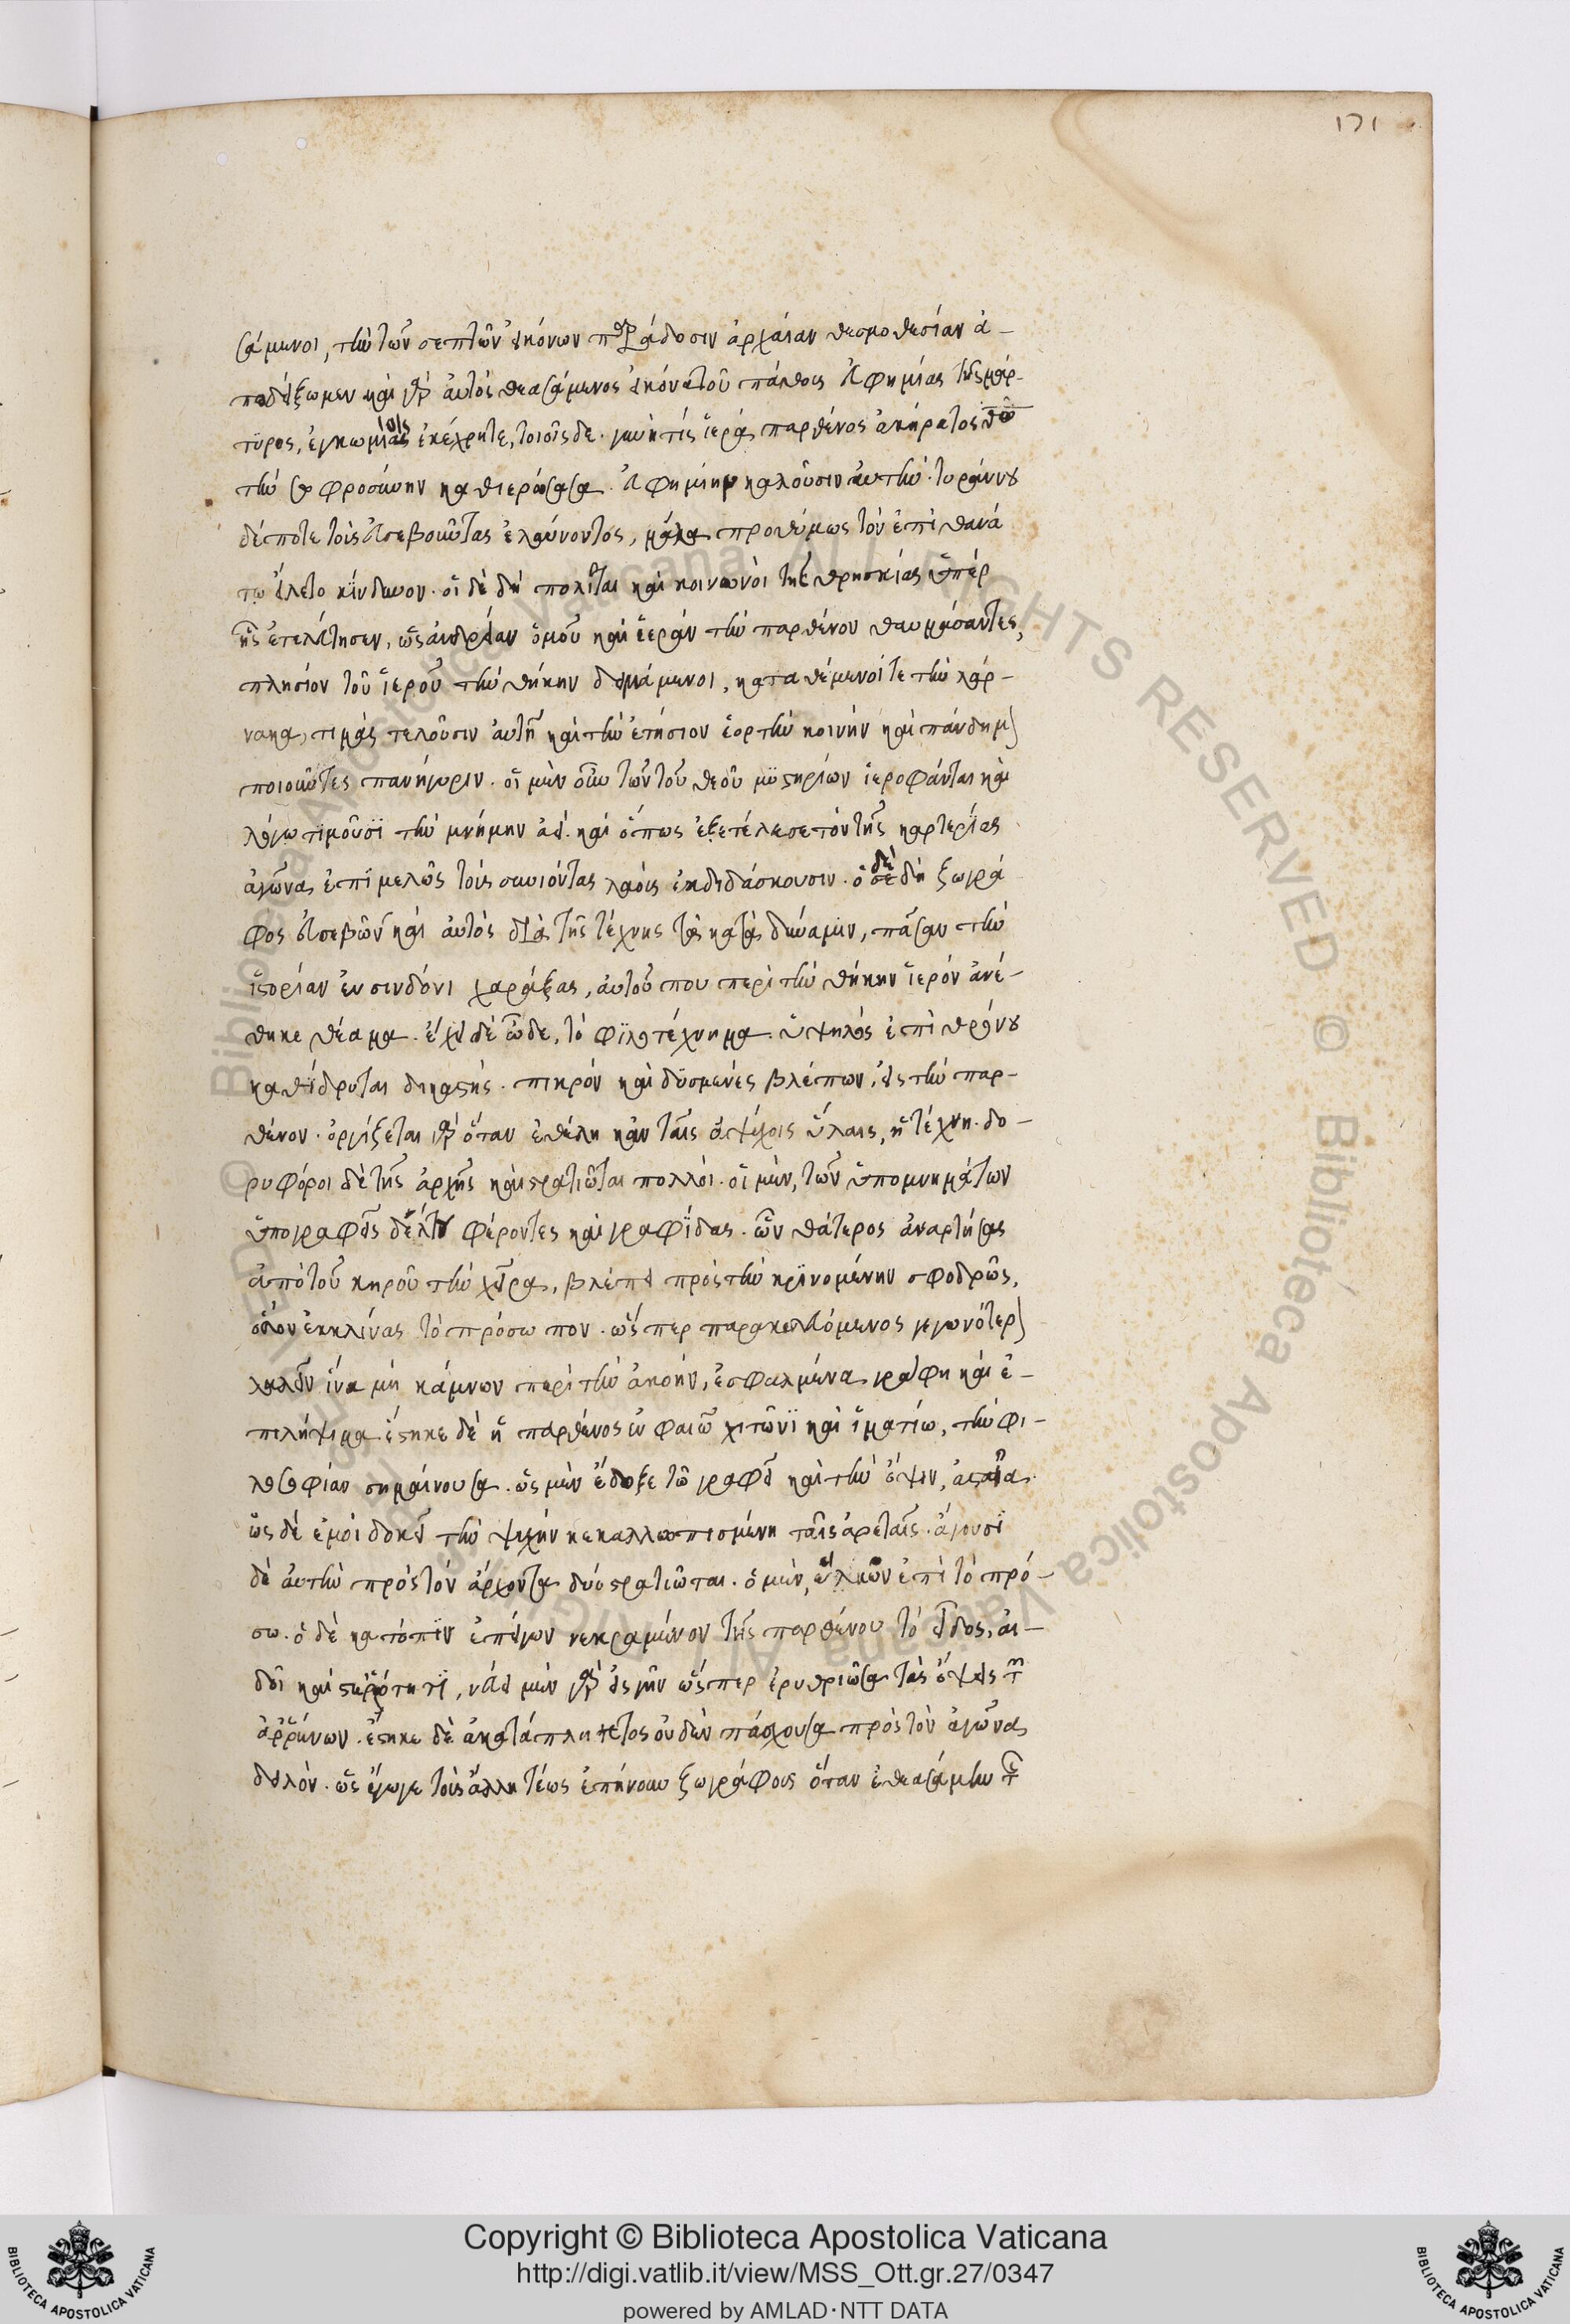 171
σάμενοι, τὴν τῶν σεπτῶν εἰκόνων παράδοσιν ἀρχαίαν θεσμοθεσίαν ἀ-
ποδείξωμεν καὶ γὰρ αὐτὸς θεασάμενος εἰκόνα τοῦ πάθους Εὐφημίας τῆς μάρ-
τυρος, ἐγκωμίοις ἐκέχρητε, τοιοῖσδε. γυνή τίς ἱερά παρθένος ἀκήρατος θεῶ
τὴν σωφροσύνην καθιερώσασα. Εὐφημίην καλοῦσιν αὐτὴν. τυράννου
δέ ποτε τοὺς εὐσεβοῦντας ἐλαύνοντος, μάλα προθύμως τὸν ἐπὶ θανά
τω εἵλετο κίνδυνον. οἱ δὲ δὴ πολῖται καὶ κοινωνοὶ τῆς θρησκίας ὑπὲρ
ἧς ἐτελεύτησεν, ὡς ἀνδρείαν ὁμοῦ καὶ ἱεράν τὴν παρθένον θαυμάσαντες,
πλησίον τοῦ ἱεροῦ τὴν θήκην δειμάμενοι, καταθέμενοί τε τὴν λάρ-
νακα, τιμὰς τελοῦσιν αὐτῆ καὶ τὴν ἐτήσιον ἑορτὴν κοινὴν καὶ πάνδημον
ποιοῦντες πανήγυριν. οἱ μὲν οὖν τῶν τοῦ θεοῦ μυστηρίων ἱεροφάνται καὶ
λόγω τιμοῦσι τὴν μνήμην ἀεὶ. καὶ ὅπως ἐξετέλεσε τὸν τῆς καρτερίας
ἀγῶνα ἐπιμελῶς τοὺς συνιόντας λαοὺς ἐκδιδάσκουσιν. ὁ δὲ δὴ ζωγρά
φος εὐσεβῶν καὶ αὐτὸς διὰ τῆς τέχνης τὰ κατὰ δύναμιν, πᾶσαν τὴν
ἱστορίαν ἐν σινδόνι χαράξας, αὐτοῦ που περὶ τὴν θήκην ἱερὸν ἀνέ-
θηκε θέαμα. ἔχει δὲ ὧδε, τὸ φιλοτέχνημα. ὑψηλός ἐπὶ θρόνου
καθίδρυται δικαστής. πικρόν καὶ δυσμενὲς βλέπων, εἰς τὴν παρ-
θένον. ὀργίζεται γὰρ ὅταν ἐθέλη κἀν ταῖς ἀψύχοις ὕλαις, ἡ τέχνη. δο-
ρυφόροι δὲ τῆς ἀρχῆς καὶ στρατιῶται πολλοί. οἱ μὲν, τῶν ὑπομνημάτων
ὑπογραφεῖς δέλτους φέροντες καὶ γραφίδας. ὧν θάτερος ἀναρτήσας
ἀπὸ τοῦ κηροῦ τὴν χεῖρα, βλέπει πρὸς τὴν κρινομένην σφοδρῶς,
ὅλον ἐκκλίνας τὸ πρόσωπον. ὥσπερ παρακελευόμενος γεγωνότερον
λαλεῖν ἵνα μὴ κάμνων περὶ τὴν ἀκοήν, ἐσφαλμένα γράφη καὶ ἐ-
πιλήψιμα ἕστηκε δὲ ἡ παρθένος ἐν φαιῶ χιτῶνι καὶ ἱματίω, τὴν φι-
λοσοφίαν σημαίνουσα. ὡς μὲν ἔδοξε τῶ γραφεῖ καὶ τὴν ὄψιν, ἀστεῖα.
ὡς δὲ ἐμοὶ δοκεῖ τὴν ψυχὴν κεκαλλωπισμένη ταῖς ἀρεταῖς. ἄγουσι
δὲ αὐτὴν πρὸς τόν ἄρχοντα δύο στρατιῶται. ὁ μὲν, ἕλκων ἐπὶ τὸ πρό-
σω. ὁ δὲ κατόπιν ἐπείγων κεκραμένον τῆς παρθένου τὸ εἶδος, αἰ-
δοῖ καὶ στερρότητι, νεύει μὲν γὰρ εἰς γῆν ὥσπερ ἐρυθριῶσα τὰς ὄψεις τῶν
ἀρρένων. ἕστηκε δὲ ἀκατάπληκτος οὐδὲν πάσχουσα πρὸς τὸν ἀγῶνα
δειλόν. ὡς ἔγωγε τοὺς ἄλλη τέως ἐπήνουν ζωγράφους ὅταν ἐθεασάμην τῆς
© Biblioteca Apostolica Vaticana ALL RIGHTS RESERVED
Copyright © Biblioteca Apostolica Vaticana
http://digi.vatlib.it/view/MSS_Ott.gr.27/0347
powered by AMLAD·NTT DATA
BIBLIOTECA APOSTOLICA VATICANA
BIBLIOTECA APOSTOLICA VATICANA